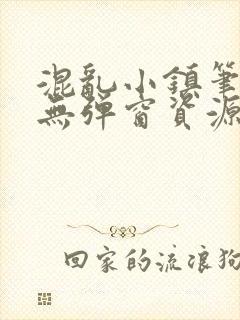 混亂小鎮筆
無彈窗資源
回家的流浪狗